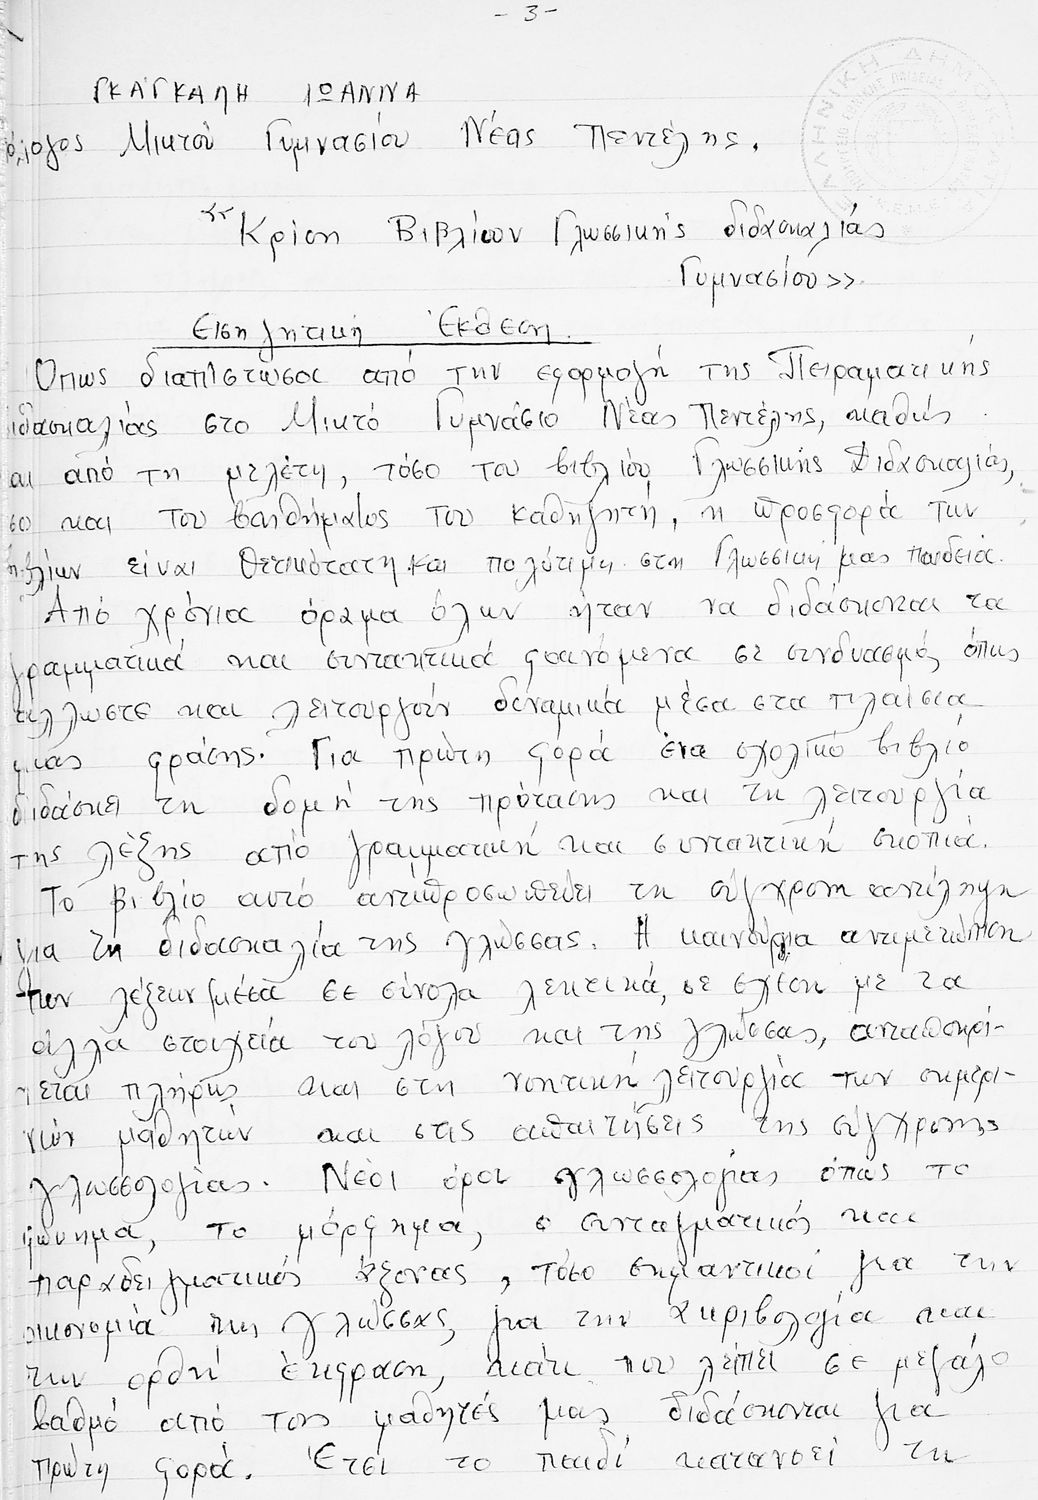 - 3 -
ΓΚΑΓΚΑΛΗ ΙΩΑΝΝΑ
όλογος Μικτού Γυμνασίου Νέας Πεντέλης.
"Κρίση Βιβλίων Γλωσσικής διδασκαλίας
Γυμνασίου>>.
Εισηγητική Έκθεση.
Όπως διαπίστωσα από την εφαρμογή της Πειραματικής
ιδασκαλίας στο Μικτό Γυμνάσιο Νέας Πεντέλης, καθώς
αι από τη μελέτη, τόσο του βιβλίου Γλωσσικής Διδασκαλίας,
σο και του βοηθήματος του καθηγητή, η προσφορά των
βιβλίων είναι θετικότατη και πολύτιμη στη Γλωσσική μας παιδεία.
Από χρόνια όραμα όλων ήταν να διδάσκονται τα
γραμματικά και συντακτικά φαινόμενα σε συνδυασμό, όπως
άλλωστε και λειτουργούν δυναμικά μέσα στα πλαίσια
μιας φράσης. Για πρώτη φορά ένα σχολικό βιβλίο
διδάσκει τη δομή της πρότασης και τη λειτουργία
της λέξης από γραμματική και συντακτική σκοπιά.
Το βιβλίο αυτό αντιπροσωπεύει τη σύγχρονη αντίληψη
για τη διδασκαλία της γλώσσας. Η καινούργια αντιμετώπιση
των λέξεων μέσα σε σύνολα λεκτικά, σε σχέση με τα
άλλα στοιχεία του λόγου και της γλώσσας, ανταποκρί-
νεται πλήρως και στη νοητική λειτουργία των σημερι-
νών μαθητών και στις απαιτήσεις της σύγχρονης
γλωσσολογίας. Νέοι όροι γλωσσολογίας όπως το
φώνημα, το μόρφημα, ο συνταγματικός και
παραδειγματικός άξονας, τόσο σημαντικοί για την
οικονομία της γλώσσας, για την ακριβολογία και
την ορθή έκφραση, κάτι που λείπει σε μεγάλο
βαθμό από τους μαθητές μας διδάσκονται για
πρώτη φορά. Έτσι το παιδί κατανοεί τη